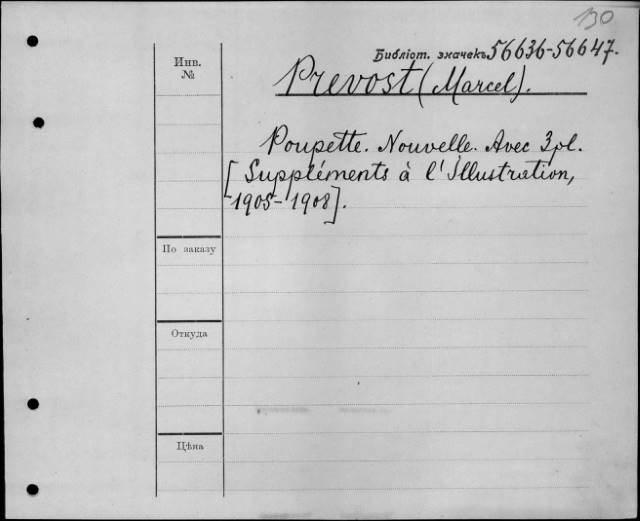 130
Библіот. значекъ 56636-56647.
Инв.
№
Prevost (Marcel).
Poupette. Nouvelle. Avec 3 pl.
[Suppléments à l'Illustration,
1905-1908].
По заказу
Откуда
Цѣна